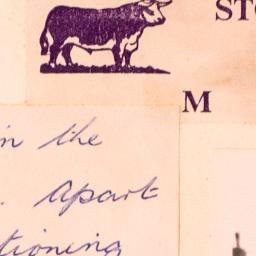 STO
M
in the
. Apart
tioning